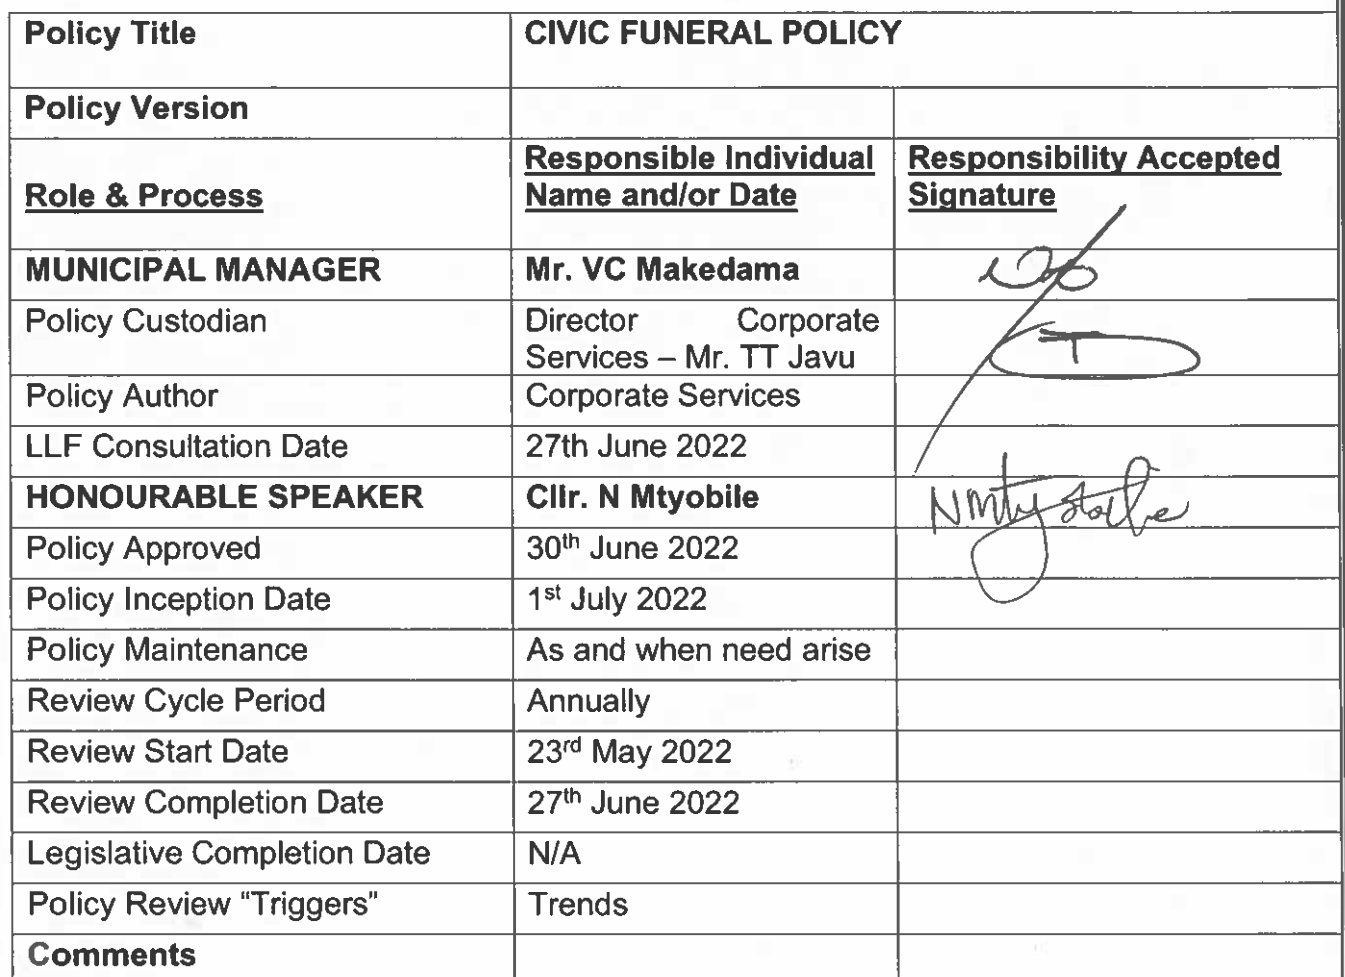 Policy Title CIVIC FUNERAL POLICY
Policy Version
Responsible Individual Responsibility Accepted
Role & Process Name and/or Date Signature
MUNICIPAL MANAGER Mr. VC Makedama
Policy Custodian Director Corporate
Services – Mr. TT Javu
Policy Author Corporate Services
LLF Consultation Date 27th June 2022
HONOURABLE SPEAKER Cllr. N Mtyobile
Policy Approved 30th June 2022
Policy Inception Date 1st July 2022
Policy Maintenance As and when need arise
Review Cycle Period Annually
Review Start Date 23rd May 2022
Review Completion Date 27th June 2022
Legislative Completion Date N/A
Policy Review “Triggers” Trends
Comments